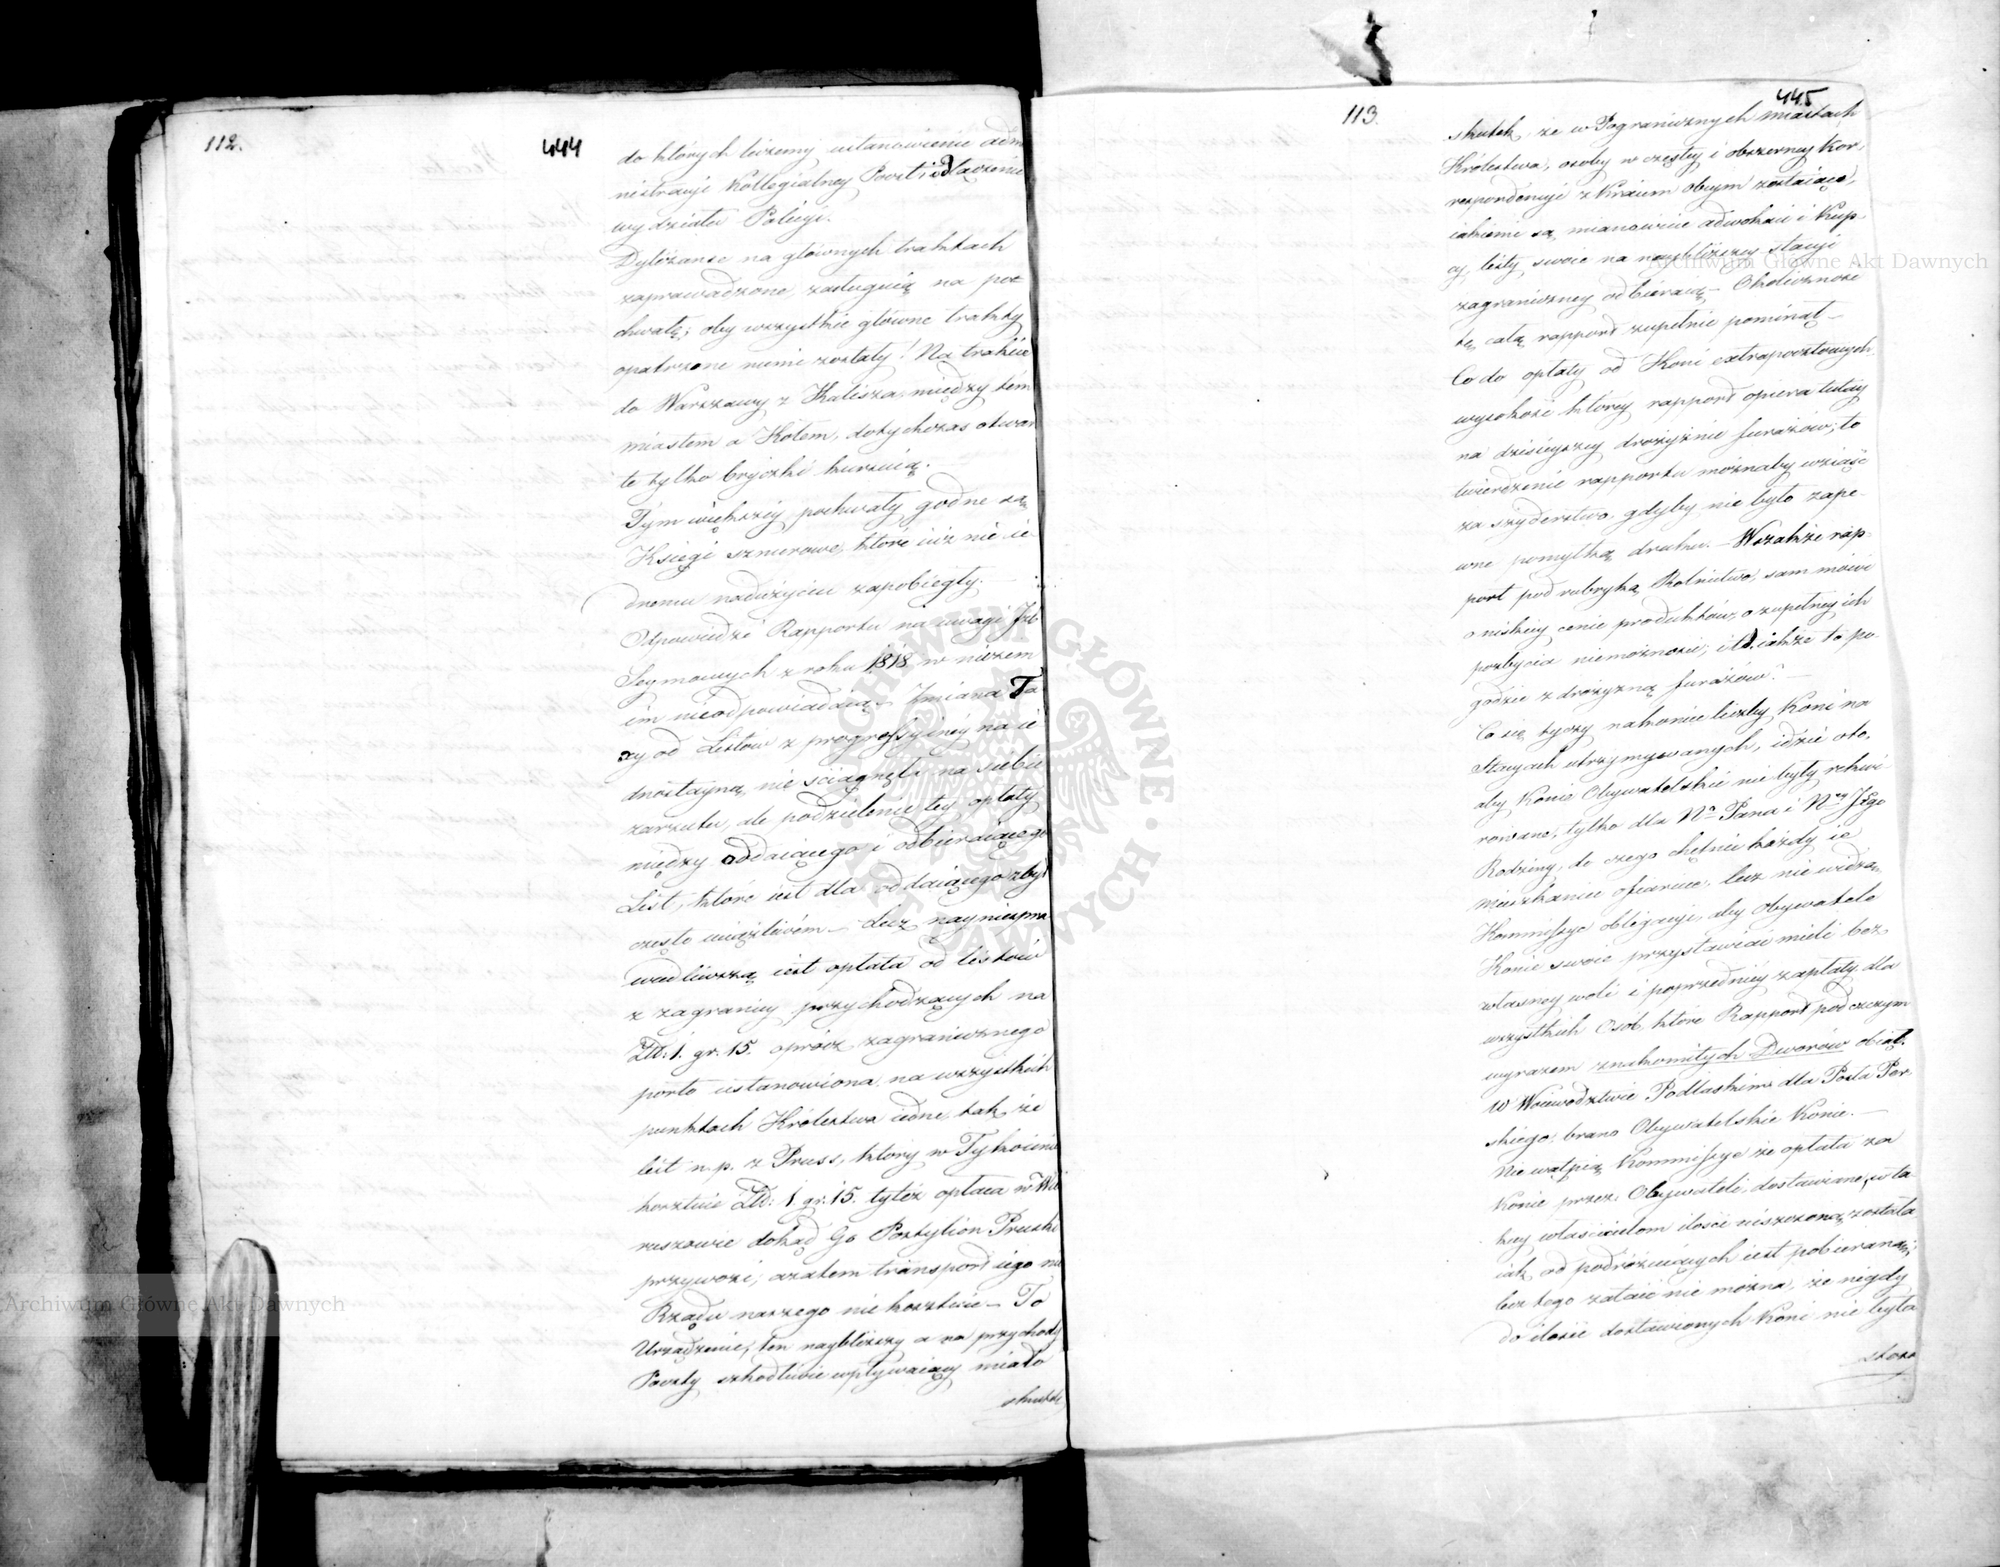 112.
444
do których liczemy ustanowienie admi
nistracyi Kollegialney Poczt i odłączenie
wydziału Policyi.
Dyliżanse na głównych traktach
zaprowadzone, zasługuią na po
chwałę; oby wszystkie główne trakty
opatrzone niemi zostały! Na trakcie
do Warszawy z Kalisza między tem
miastem a Kołem, dotychczas otwar
te tylko bryczki kursuią.
Tym większey pochwały godne są
Księgi sznurowe, które iuż nie ie
dnemu nadużyciu zapobiegły.
Odpowiedzi Rapportu na uwagi Izb
Seymowych z roku 1818 w niczem
im nieodpowiadaią. Zmiana Ta
xy od Listów z progressyiney na ie
dnostayną, nie ściągnęła na siebie
zarzutu, ale podzielenie tey opłaty
między oddaiącego i odbieraiącego
List, które iest dla oddaiącego zbyt
często uciążliwém. Lecz nayniespra
wiedliwszą iest opłata od listów
z zagranicy przychodzących na
Złt: 1. gr. 15. oprócz zagranicznego
porto ustanowiona na wszystkich
punktach Królestwa iedne, tak, że
list n.p. z Pruss, który w Tykocinie
kosztuie Złt: 1 gr. 15. tyleż opłaca w Wie
ruszowie dokąd Go Postylion Pruski
przywozi; a zatem transport iego nic
Rządu naszego nie kosztuie. To
Urządzenie, ten naybliższy a na przychody
Poczty szkodliwie wpływaiący miało
skutek
113.
445
skutek, że w Pogranicznych miastach
Królestwa, osoby w częstey i obszerney Kor-
respondencyi z Kraiem obcym zostaiące,
iakiemi są mianowicie adwokaci i Kup-
cy, listy swoie na naybliższey stacyi
zagraniczney odbieraią. Okoliczność
tę całą rapport zupełnie pominął.
Co do opłaty od Koni extrapocztowych
wysokość którey rapport opiera tutay
na dzisieyszey drożyznie furażów; to
twierdzenie rapportu możnaby wziąść
za szyderstwo, gdyby nie było zape-
wne pomyłką druku. Wszakże rap-
port pod rubryką Rolnictwo, sam mówi
o niskiey cenie produktów, o zupełney ich
pozbycia niemożności; i iakże to po-
godzić z drożyzną furażów?
Co się tyczy nakoniec liczby Koni na
Stacyach utrzymywanych, idzie oto,
aby Konie Obywatelskie nie były rekwi-
rowane, tylko dla No Pana i Ney JEgo
Rodziny, do czego chętnie każdy ie
mieszkaniec ofiaruie, lecz nie widzą
Kommissye obligacyi, aby Obywatele
Konie swoie przystawiać mieli bez
własney woli i poprzedniey zapłaty dla
wszystkich Osób, które Rapport pod czczym
wyrazem znakomitych Dworów obiął.
W Woiewodztwie Podlaskim dla Posła Per-
skiego, brano Obywatelskie Konie.
Nie wątpią Kommissye że opłata za
Konie przez Obywateli dostawiane, w ta
kiey właścicielom ilości uiszczoną została
iak od podróżuiących iest pobieraną;
lecz tego zataić nie można, że nigdy
do ilości dostawionych Koni nie była
stoso